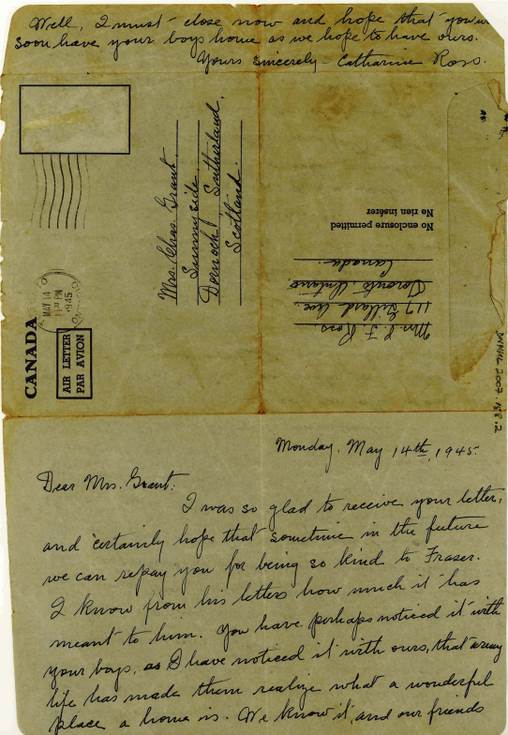 Well, I must close now and hope that you will
soon have your boys home as we hope to have ours.
Yours sincerely - Catharine Ross.
Mrs. Chas. Grant,
Sunnyside,
Dornoch, Sutherland,
Scotland.
MAY 14
PM
1945
CANADA
AIR LETTER
PAR AVION
Mrs. J. F. Ross
117 Gillard Ave.
Toronto, Ontario,
Canada.
No enclosure permitted
Ne rien insérer
2007.188.2
Monday, May 14th, 1945.
Dear Mrs. Grant:
I was so glad to receive your letter,
and certainly hope that sometime in the future
we can repay you for being so kind to Fraser.
I know from his letters how much it has
meant to him. You have perhaps noticed it with
your boys, as I have noticed it with ours, that army
life has made them realize what a wonderful
place a home is. We know it, and our friends